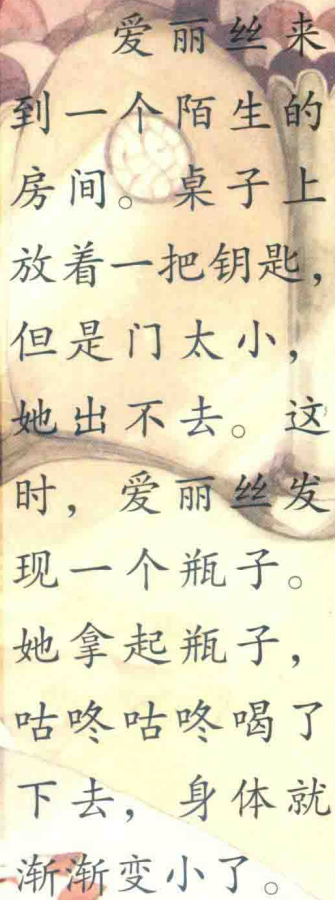 爱丽丝来
到一个陌生的
房间。桌子上
放着一把钥匙，
但是门太小，
她出不去。这
时，爱丽丝发
现一个瓶子。
她拿起瓶子，
咕咚咕咚喝了
下去，身体就
渐渐变小了。